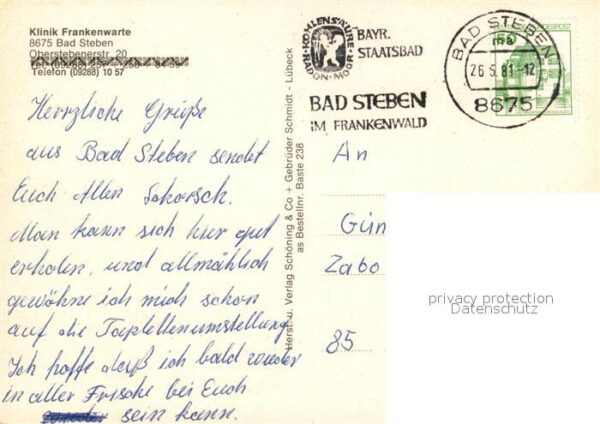 Klinik Frankenwarte
8675 Bad Steben
Oberstebenerstr. 20
Telefon (09288) 10 57
RADON · KOHLENSÄURE · MOOR
BAYR.
STAATSBAD
BAD STEBEN
IM FRANKENWALD
BAD STEBEN
26.5.81-12
8675
BUNDESPOST
Herzliche Grüße
aus Bad Steben sendet
Euch Allen Schorsch.
Man kann sich hier gut
erholen, und allmählich
gewöhne ich mich schon
auf die Taplettenumstellung
Ich hoffe daß ich bald wieder
in aller Frische bei Euch
sein kann.
Herst. u. Verlag Schöning & Co + Gebrüder Schmidt - Lübeck
as Bestellnr. Baste 238
An
Gün
Zabo
85
privacy protection
Datenschutz